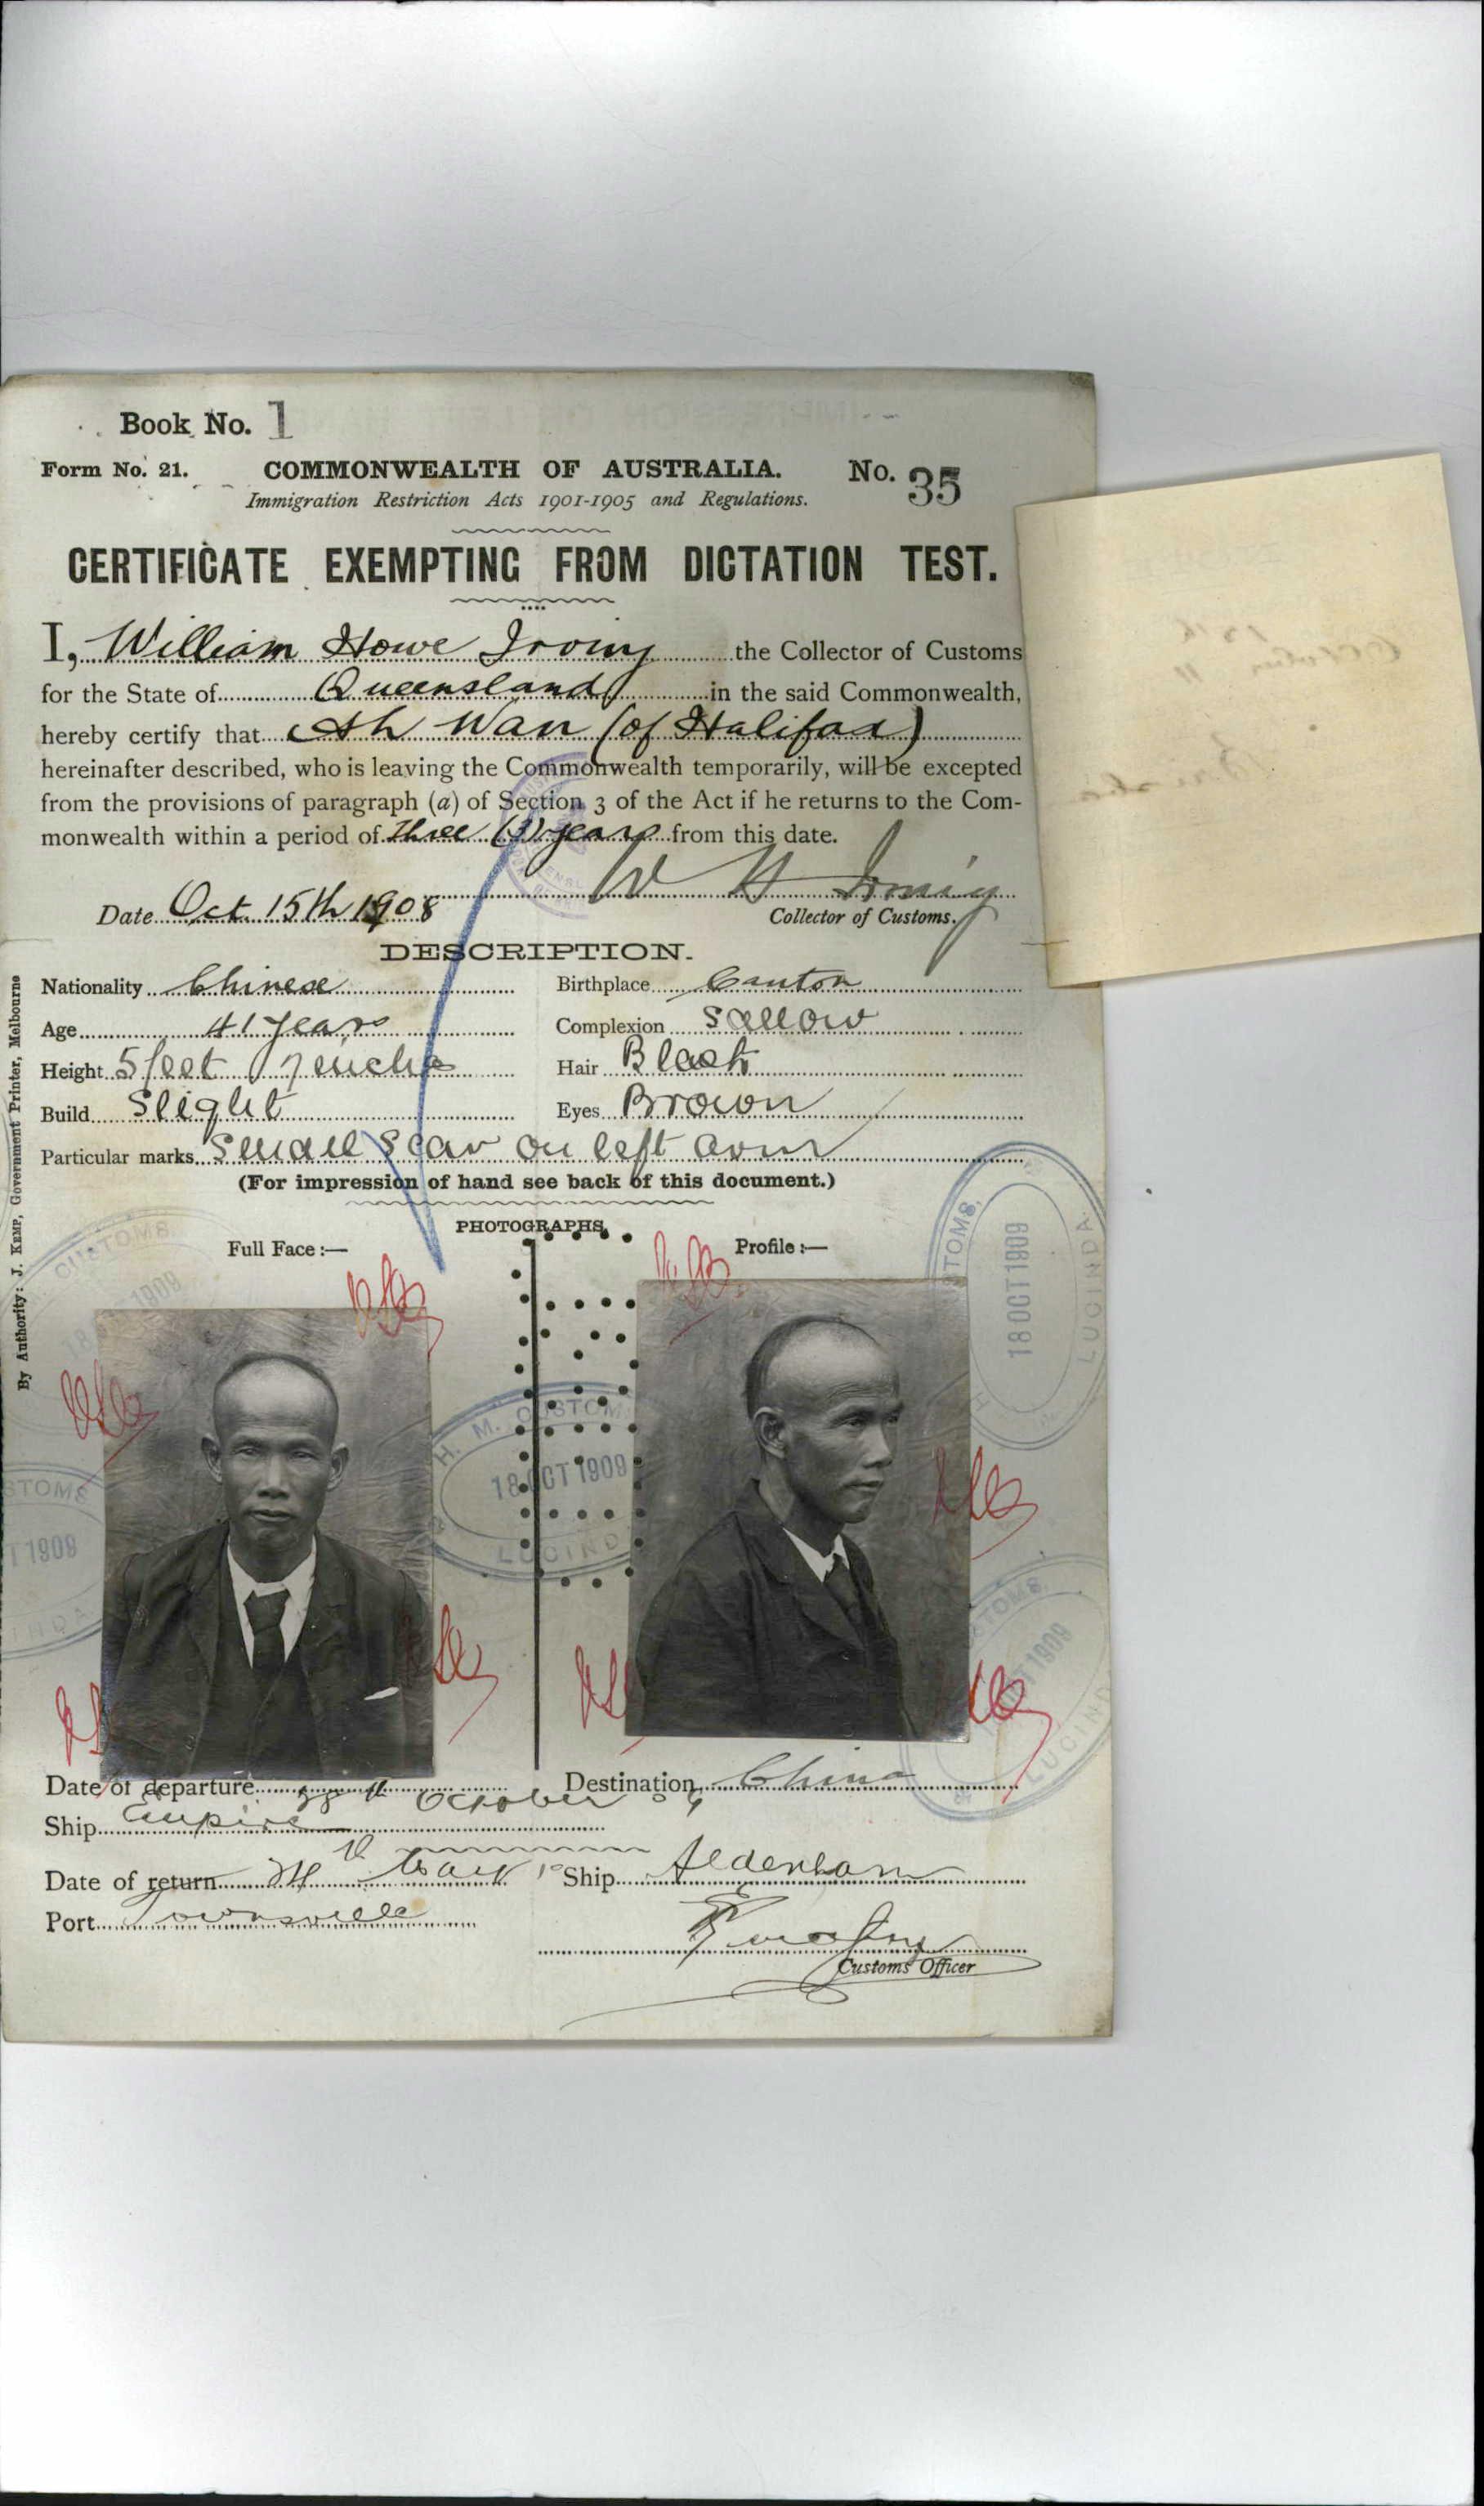 Book No. 1
Form No. 21. COMMONWEALTH OF AUSTRALIA. No. 35
Immigration Restriction Acts 1901-1905 and Regulations.
CERTIFICATE EXEMPTING FROM DICTATION TEST.
I, William Howe Irving the Collector of Customs
for the State of Queensland in the said Commonwealth,
hereby certify that Ah Wan (of Halifax)
hereinafter described, who is leaving the Commonwealth temporarily, will be excepted
from the provisions of paragraph (a) of Section 3 of the Act if he returns to the Com-
monwealth within a period of three (3) years from this date.
W H Irving
Date Oct. 15th 1908 Collector of Customs.
DESCRIPTION.
Nationality Chinese Birthplace Canton
Age 41 years Complexion Sallow
Height 5 feet 7 inches Hair Black
Build Slight Eyes Brown
Particular marks Small scar on left arm
(For impression of hand see back of this document.)
PHOTOGRAPHS.
Full Face :— Profile :—
H. M. CUSTOMS
18 OCT 1909
LUCINDA
CUSTOMS
18 OCT 1909
LUCINDA
Date of departure October 09 Destination China
Ship Empire
Date of return Ship Aldenham
Port Townsville
Customs Officer
By Authority: J. KEMP, Government Printer, Melbourne